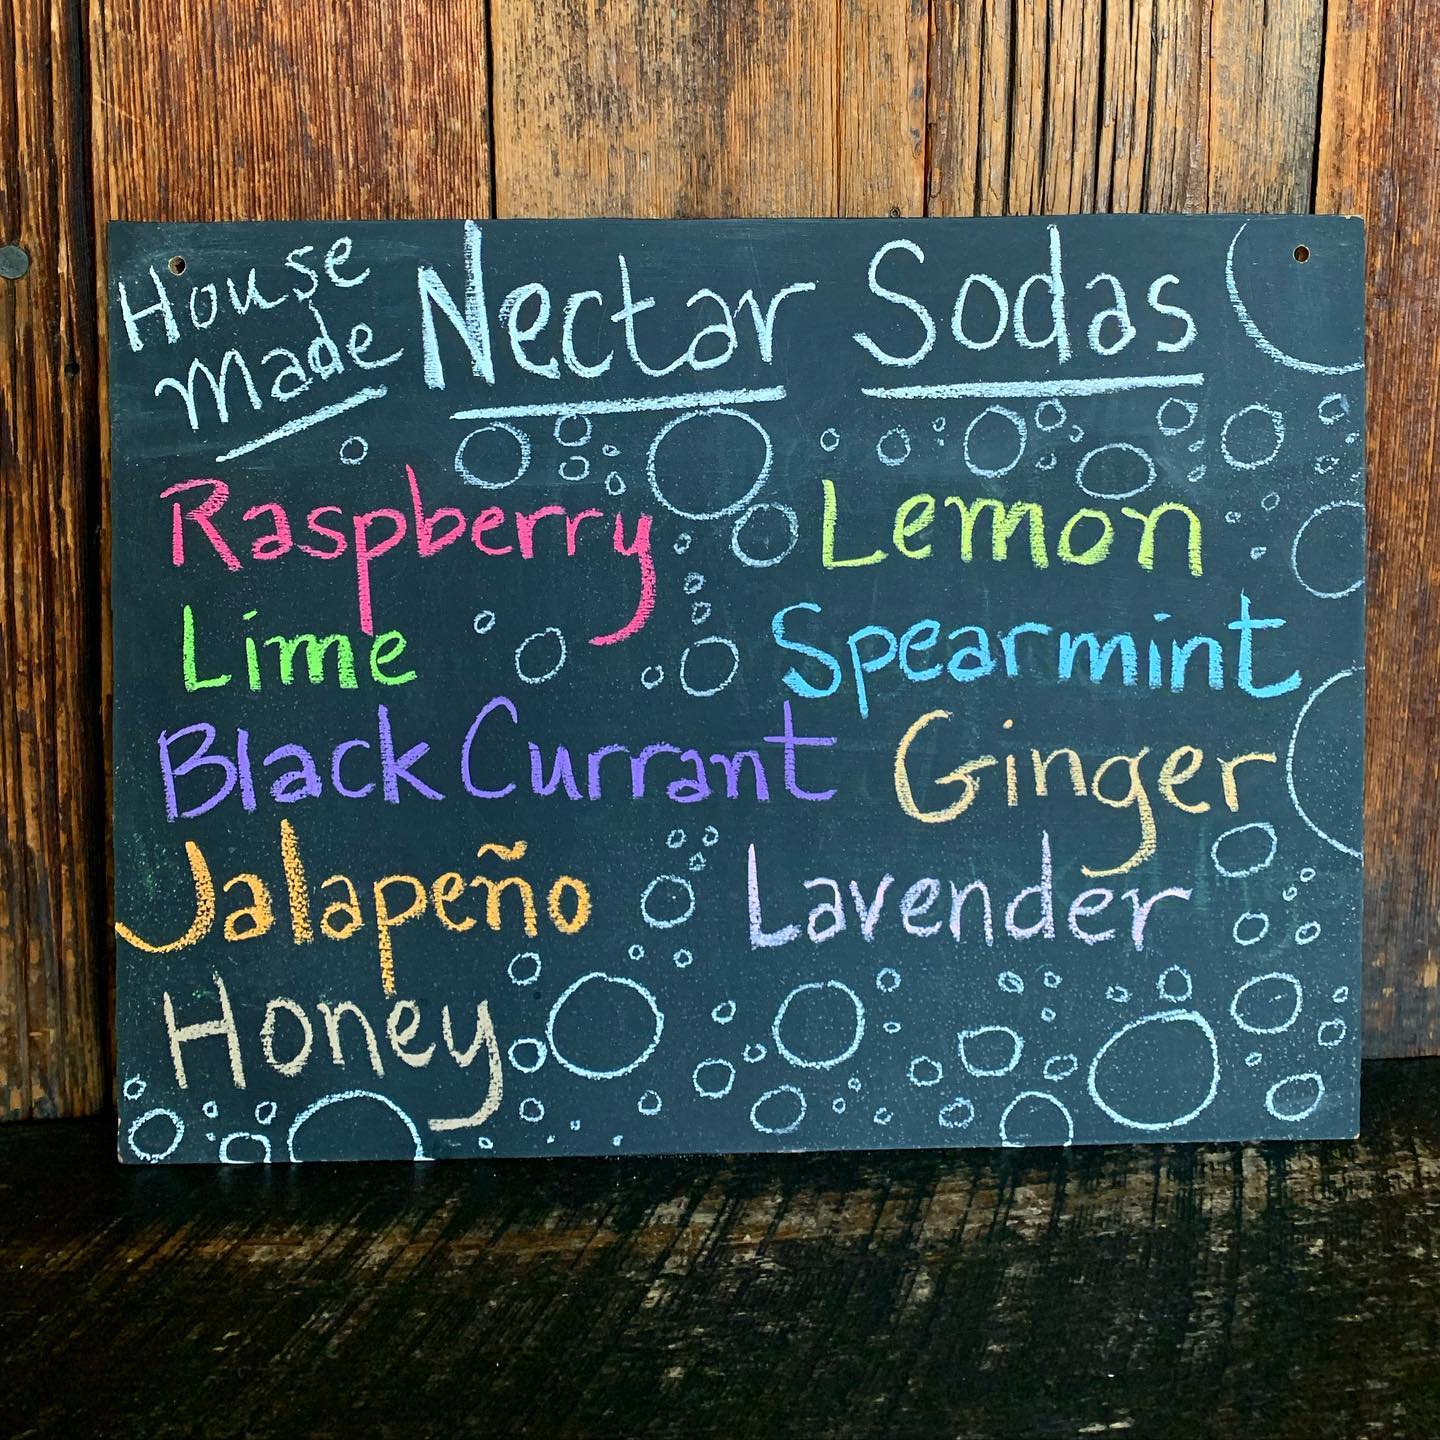 House Made Nectar Sodas
Raspberry Lemon
Lime Spearmint
Black Currant Ginger
Jalapeño Lavender
Honey